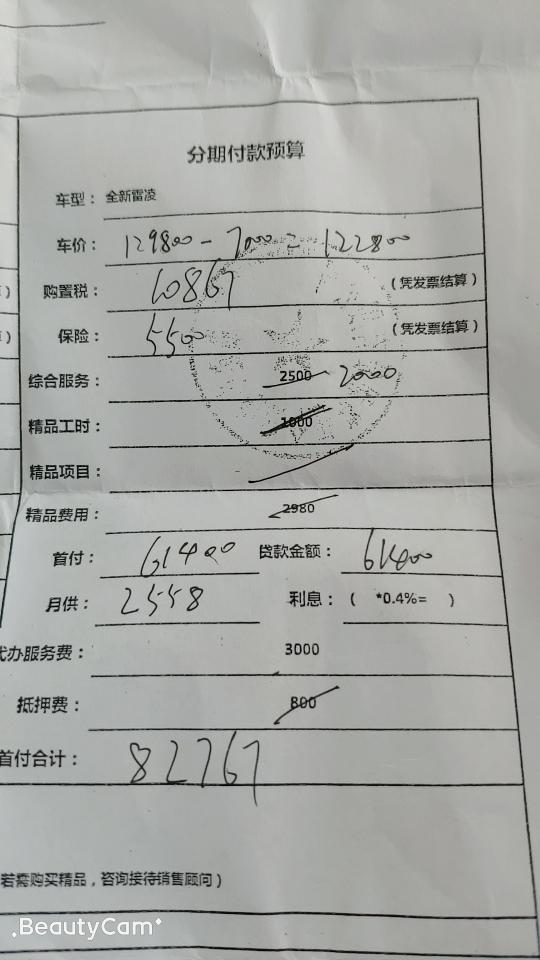 分期付款预算
车型：全新雷凌
车价：129800 - 7000 = 122800
购置税：10867 （凭发票结算）
保险：5500 （凭发票结算）
综合服务：2500 2000
精品工时：1000
精品项目：
精品费用：2980
首付：61400 贷款金额：61400
月供：2558 利息：（ *0.4%= ）
代办服务费：3000
抵押费：800
首付合计：82767
若需购买精品，咨询接待销售顾问）
BeautyCam